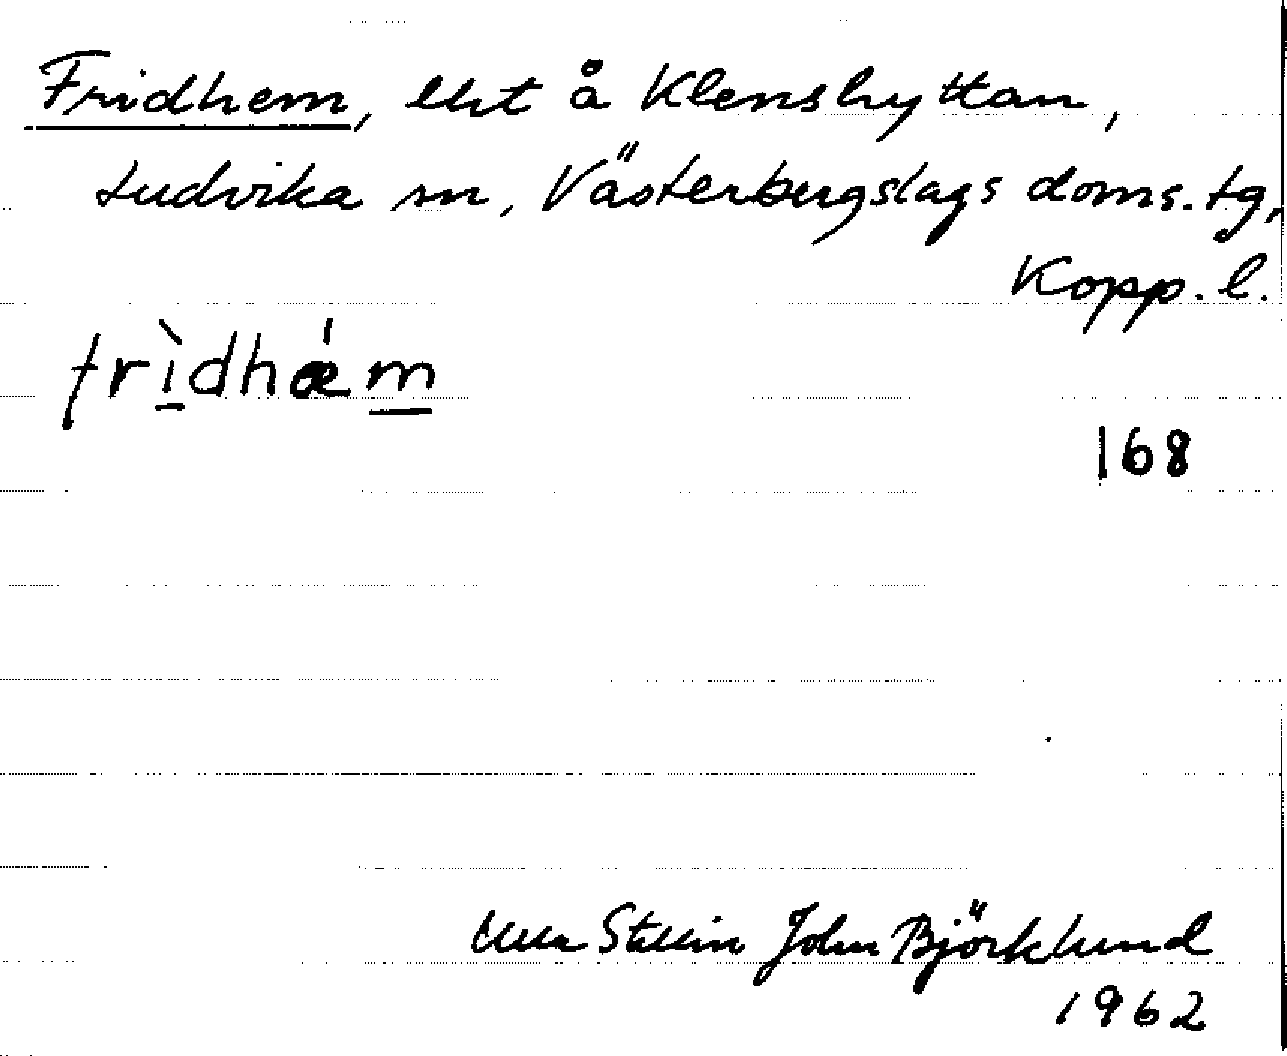 Fridhem, lht å Klenshyttan,
Ludvika sn, Västerbergslags doms. tg,
Kopp. l.
frìdhǽm
168
Ulla Stellin John Björklund
1962